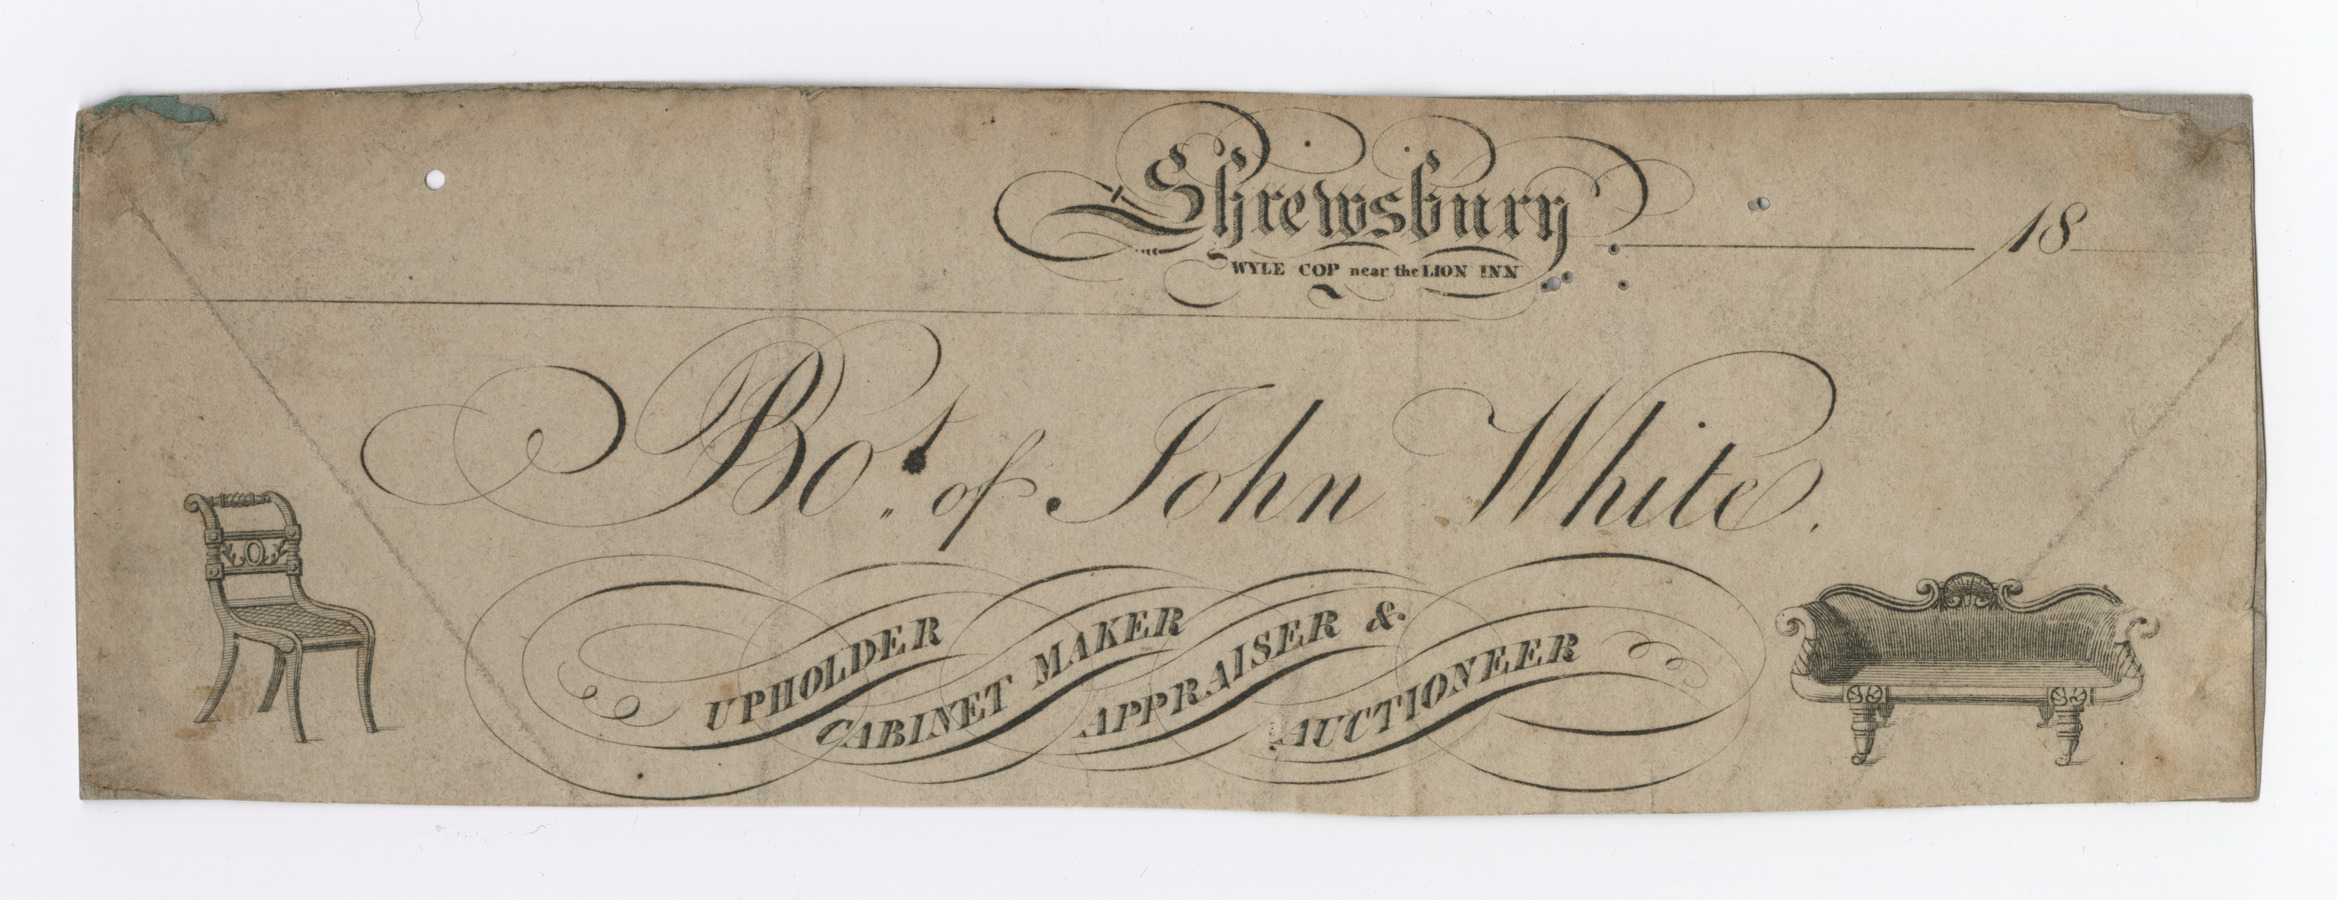 Shrewsbury 18
WYLE COP near the LION INN
Bo.t of John White.
UPHOLDER
CABINET MAKER
APPRAISER &
AUCTIONEER